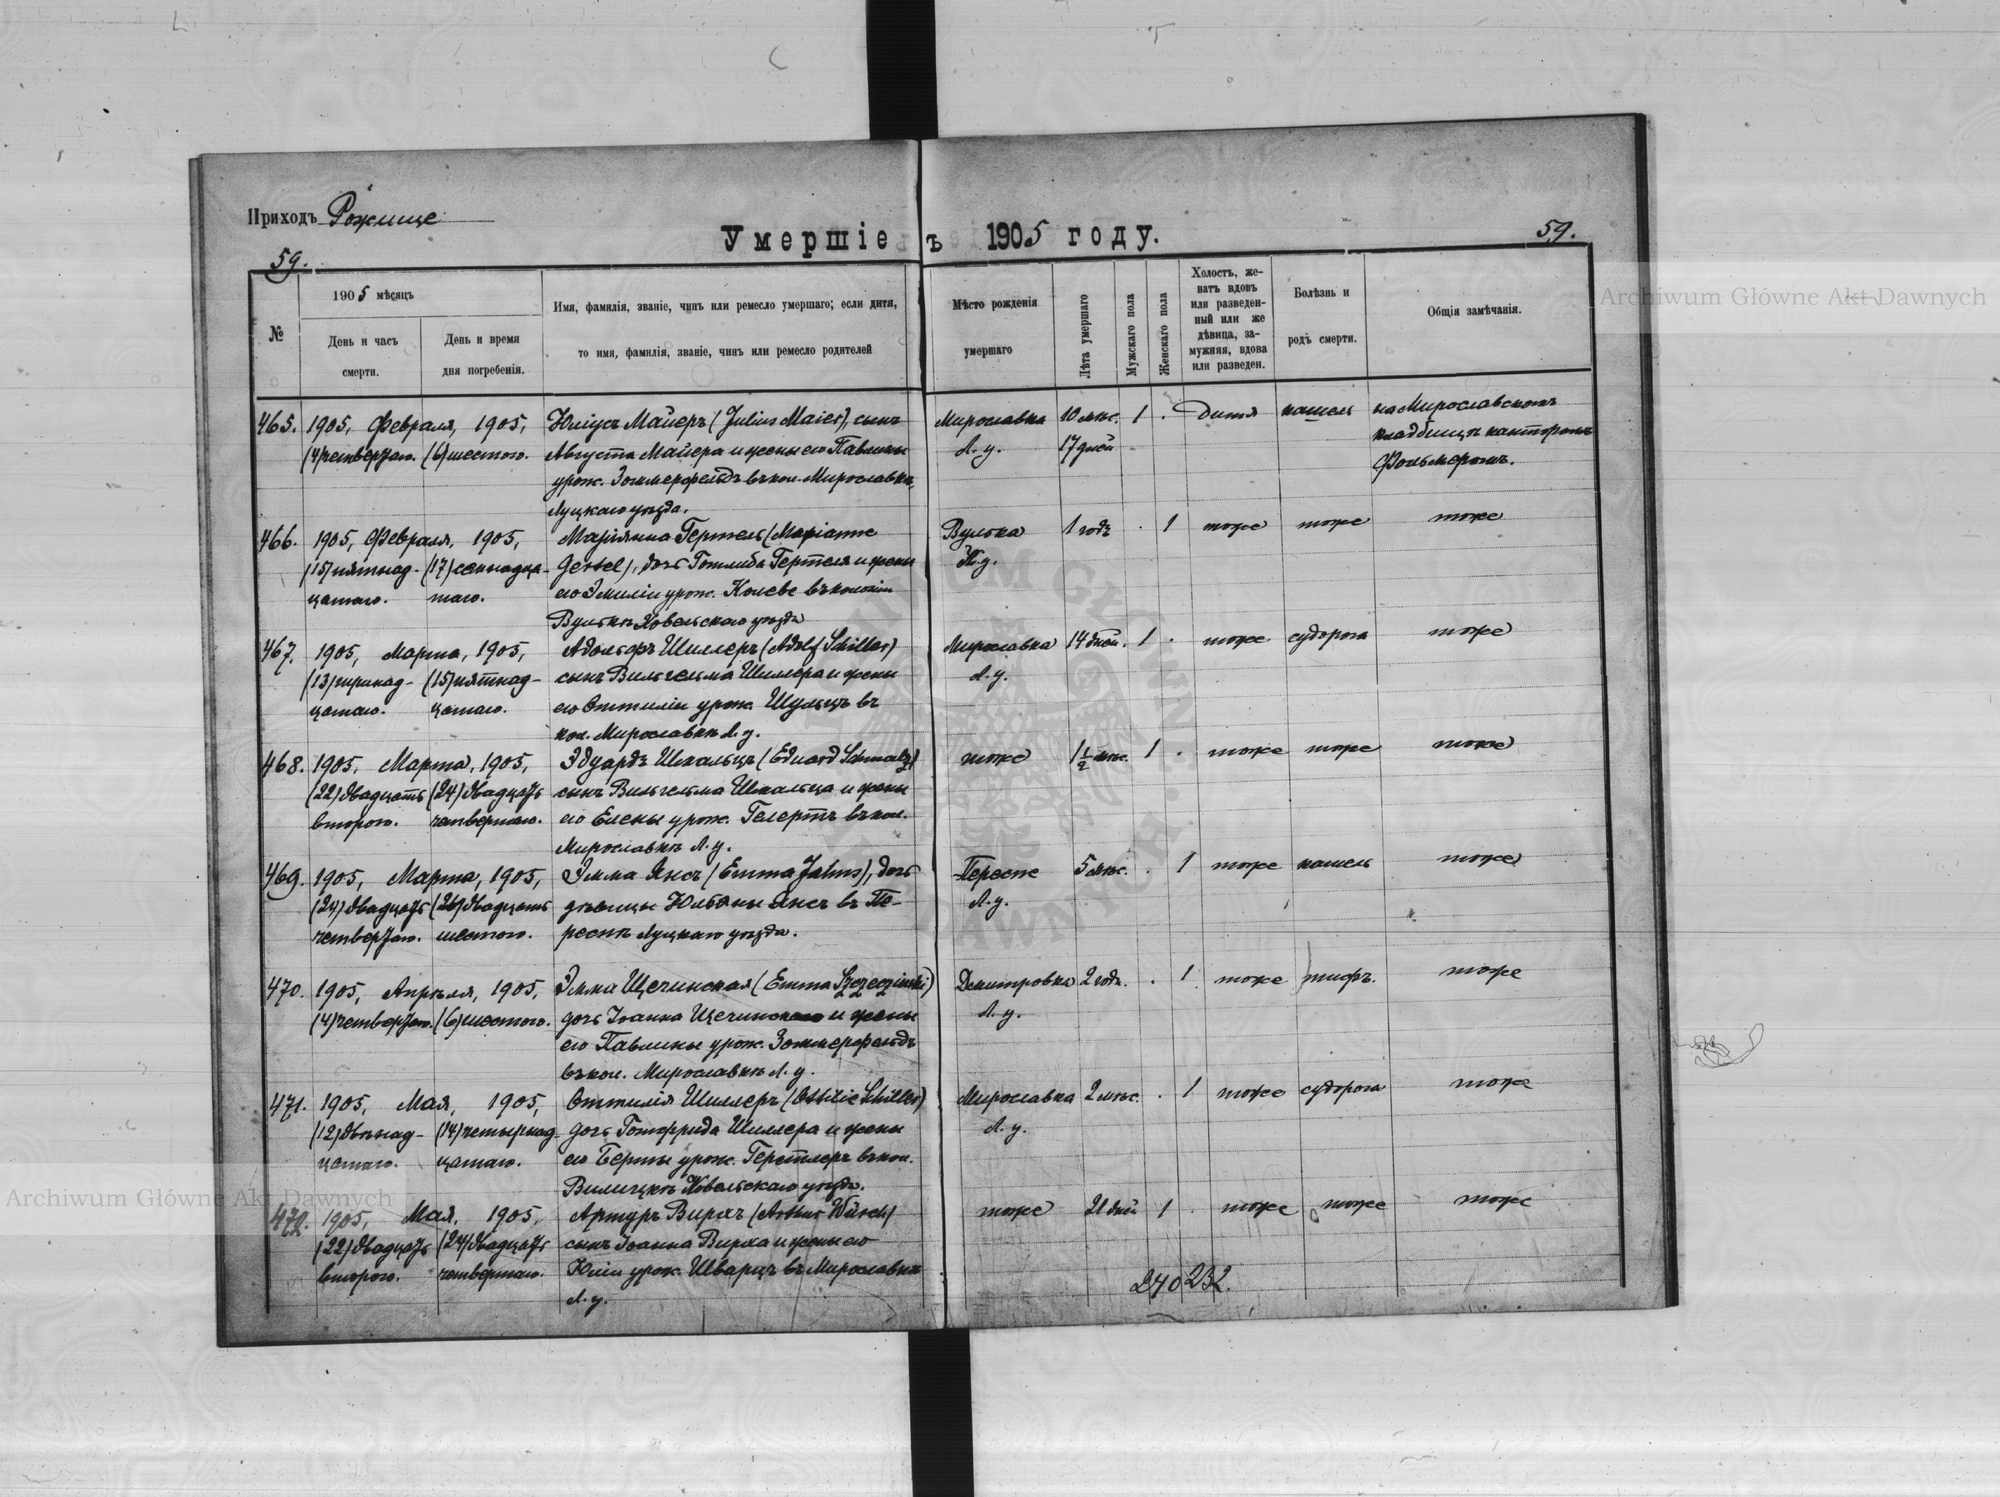 Приходъ Рожище
Умершіе въ 1905 году.
59.
59.
№
1905 мѣсяцъ
День и часъ
смерти.
День и время
дня погребенія.
Имя, фамилія, званіе, чинъ или ремесло умершаго; если дитя,
то имя, фамилія, званіе, чинъ или ремесло родителей
Мѣсто рожденія
умершаго
Лѣта умершаго
Мужскаго пола
Женскаго пола
Холостъ, же-
натъ вдовъ
или разведен-
ный или же
дѣвица, за-
мужняя, вдова
или разведен.
Болѣзнь и
родъ смерти.
Общія замѣчанія.
465. 1905, Февраля, 1905, Юліусъ Майеръ (Julius Maier), сынъ Мирославка 10 мѣс. 1 . дитя кашель на Мирославскомъ
(4) четвертаго. (6) шестого. Августа Майера и жены его Павлины Л. у. 17 дней кладбищѣ канторомъ
урож. Зоммерфельдъ въ кол. Мирославкѣ, Фольмеромъ.
Луцкаго уѣзда.
466. 1905, Февраля, 1905, Маріянна Гертель (Marianne Вулька 1 годъ . 1 тоже тоже тоже
(15) пятнад- (17) семнадца- Gertel), дочь Готлиба Гертеля и жены К. у.
цатаго. таго. его Эмиліи урож. въ колоніи
Вулькѣ Ковельскаго уѣзда
467. 1905, Марта, 1905, Адольфъ Шиллеръ (Adolf Schiller) Мирославка 14 дней. 1 . тоже судорога тоже
(13) тринад- (15) пятнад- сынъ Вильгельма Шиллера и жены Л. у.
цатаго. цатаго. его Оттиліи урож. Шульцъ въ
кол. Мирославкѣ Л. у.
468. 1905, Марта, 1905, Эдуардъ Шмальцъ (Eduard Schmalz) тоже 1 1/2 мѣс. 1 . тоже тоже тоже
(22) двадцать (24) двадцать сынъ Вильгельма Шмальца и жены
второго. четвертаго. его Елены урож. Гелертъ въ кол.
Мирославкѣ Л. у.
469. 1905, Марта, 1905, Эмма Янсъ (Emma Jahns), дочь Переспе 5 мѣс. . 1 тоже кашель тоже
(24) двадцать (26) двадцать дѣвицы Юльяны Янсъ въ Пе-
Л. у.
четвертаго. шестого. респѣ Луцкаго уѣзда.
470. 1905, Апрѣля, 1905, Эмма Щечинская (Emma Szczeczinski) Дмитровка 2 года. . 1 тоже тифъ. тоже
(4) четвертаго. (6) шестого. дочь Іоанна Щечинскаго и жены Л. у.
его Павлины урож. Зоммерфельдъ
въ кол. Мирославкѣ Л. у.
471. 1905, Мая, 1905, Оттилія Шиллеръ (Ottilie Schiller) Мирославка 2 мѣс. . 1 тоже судорога тоже
(12) двѣнад- (14) четырнад- дочь Готфрида Шиллера и жены Л. у.
цатаго. цатаго. его Берты урож. Герстлеръ въ кол.
Ковельскаго уѣзда.
472. 1905, Мая, 1905, Артуръ Вирхъ (Arthur Würch) тоже 21 дней 1 . тоже тоже тоже
(22) двадцать (24) двадцать сынъ Іоанна Вирха и жены его
второго. четвертаго. Юліи урож. Шварцъ въ Мирославкѣ
Л. у.
240 232.
Archiwum Główne Akt Dawnych
Archiwum Główne Akt Dawnych